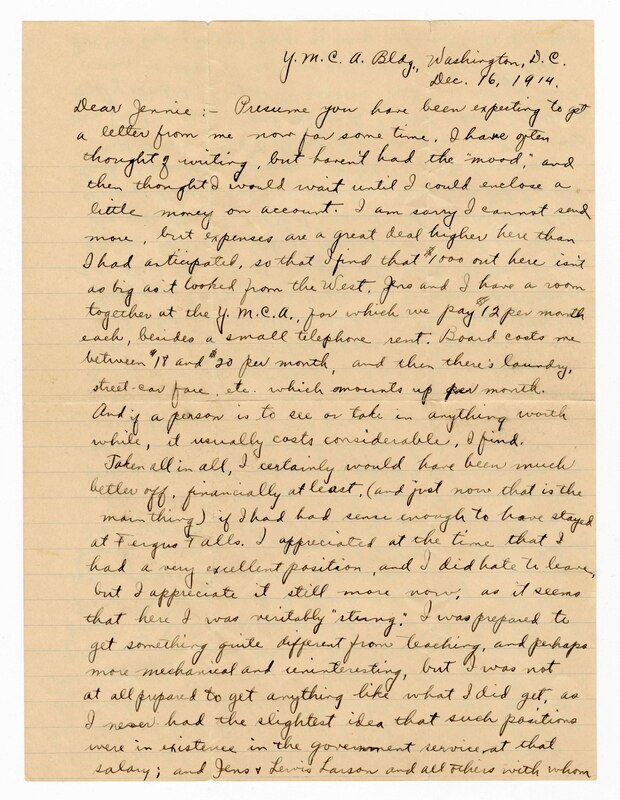 Y.M.C.A. Bldg., Washington, D.C.
Dec. 16, 1914.
Dear Jennie:- Presume you have been expecting to get
a letter from me now for some time. I have often
thought of writing, but haven't had the "mood," and
then thought I would wait until I could enclose a
little money on account. I am sorry I cannot send
more, but expenses are a great deal higher here than
I had anticipated, so that I find that $1000 out here isn't
as big as it looked from the West. Jens and I have a room
together at the Y.M.C.A., for which we pay $12 per month
each, besides a small telephone rent. Board costs me
between $18 and $20 per month, and then there's laundry,
street-car fare, etc. which amounts up per month.
And if a person is to see or take in anything worth
while, it usually costs considerable, I find.
Taken all in all, I certainly would have been much
better off, financially at least, (and just now that is the
main thing) if I had had sense enough to have stayed
at Fergus Falls. I appreciated at the time that I
had a very excellent position, and I did hate to leave,
but I appreciate it still more now, as it seems
that here I was veritably "stung." I was prepared to
get something quite different from teaching, and perhaps
more mechanical and uninteresting, but I was not
at all prepared to get anything like what I did get, as
I never had the slightest idea that such positions
were in existence in the government service, at that
salary; and Jens & Lewis Larson and all others with whom